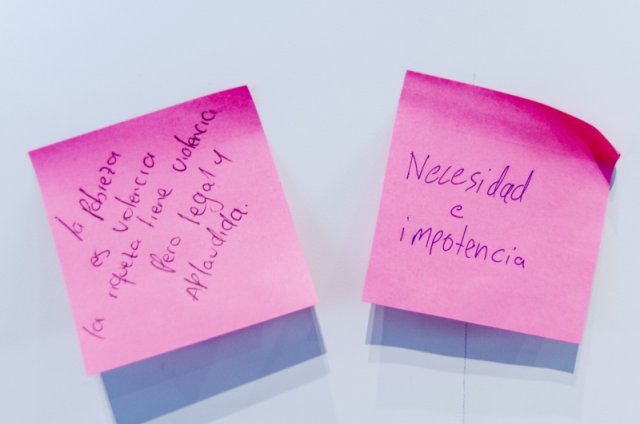 la Pobreza
es violencia
la riqueza tiene violencia
Pero legal y
Aplaudida.
Necesidad
e
impotencia